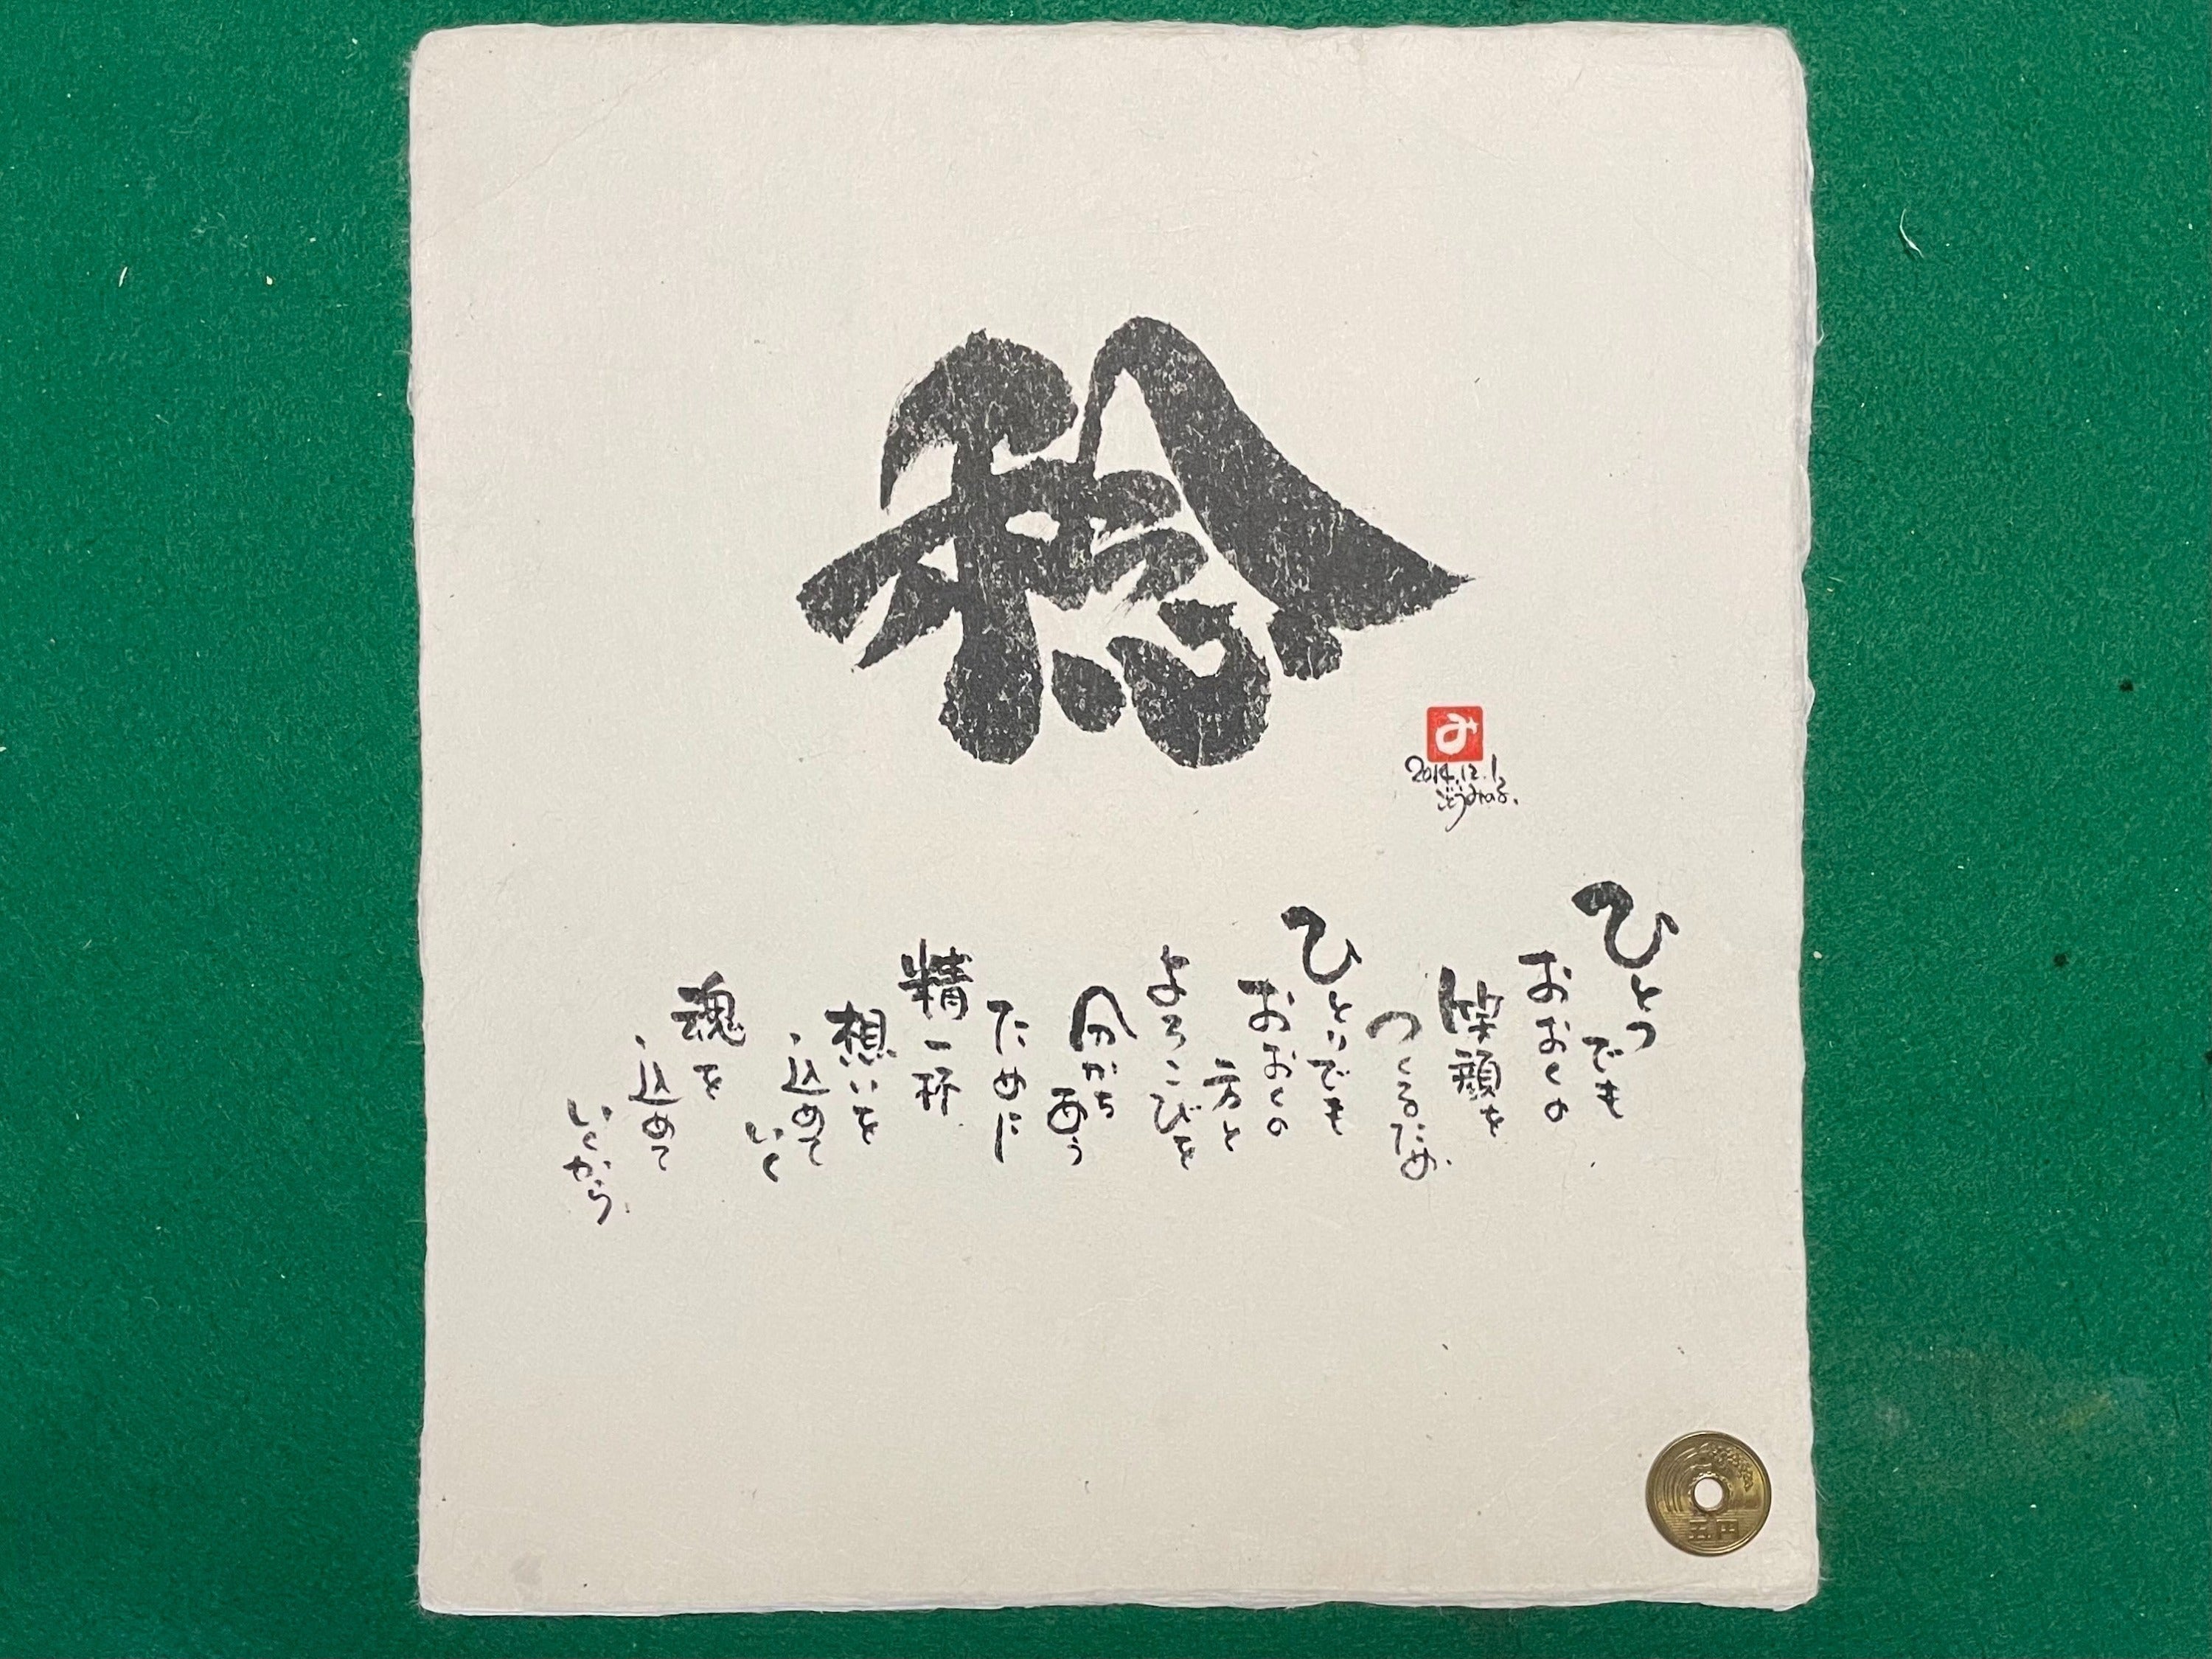 稔
み
2014.12.1
ごとうみのる.
ひとつ
でも
おおくの
笑顔を
つくるため
ひとりでも
おおくの
方と
よろこびを
分かち
あう
ために
精一杯
想いを
込めて
いく
魂を
込めて
いくから